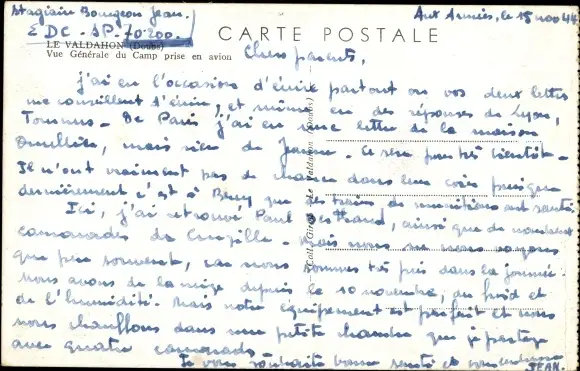 Stagiaire Bourgeon Jean.
E DC. SP. 70.200.
Aux Armées, le 15 nov 44
CARTE POSTALE
LE VALDAHON (Doubs)
Vue Générale du Camp prise en avion
Chers parents,
j'ai eu l'occasion d'écrire partout où vos deux lettres
me conseillent d'écrire, et même eu des réponses de Lyon,
Tournus - De Paris j'ai eu une lettre de la maison
mais rien de Jeanne. Ce sera pour très bientôt -
Il n'ont vraiment pas de chance dans leur coin puisque
dernièrement c'est à Bercy que des trains de munitions ont sauté
Ici, j'ai retrouvé Paul ainsi que de nombreux
camarades de - Mais nous ne nous voyons
que peu souvent, car nous sommes très pris dans la journée
Nous avons de la neige depuis le 10 novembre, du froid et
de l'humidité. Mais notre équipement est parfait et nous
nous chauffons dans une petite chambre que je partage
avec quatre camarades.
Je vous souhaite bonne santé et vous embrasse
JEAN.